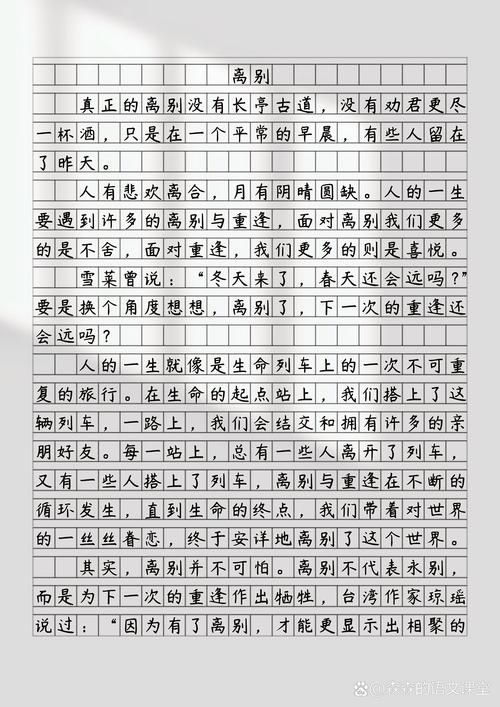 离别
真正的离别没有长亭古道，没有劝君更尽
一杯酒，只是在一个平常的早晨，有些人留在
了昨天。
人有悲欢离合，月有阴晴圆缺。人的一生
要遇到许多的离别与重逢，面对离别我们更多
的是不舍，面对重逢，我们更多的则是喜悦。
雪莱曾说：“冬天来了，春天还会远吗？”
要是换个角度想想，离别了，下一次的重逢还
会远吗？
人的一生就像是生命列车上的一次不可重
复的旅行。在生命的起点站上，我们搭上了这
辆列车，一路上，我们会结交和拥有许多的亲
朋好友。每一站上，总有一些人离开了列车，
又有一些人搭上了列车，离别与重逢在不断的
循环发生，直到生命的终点，我们带着对世界
的一丝丝眷恋，终于安详地离别了这个世界。
其实，离别并不可怕。离别不代表永别，
而是为下一次的重逢作出牺牲，台湾作家琼瑶
说过：“因为有了离别，才能更显示出相聚的
森森的语文课堂